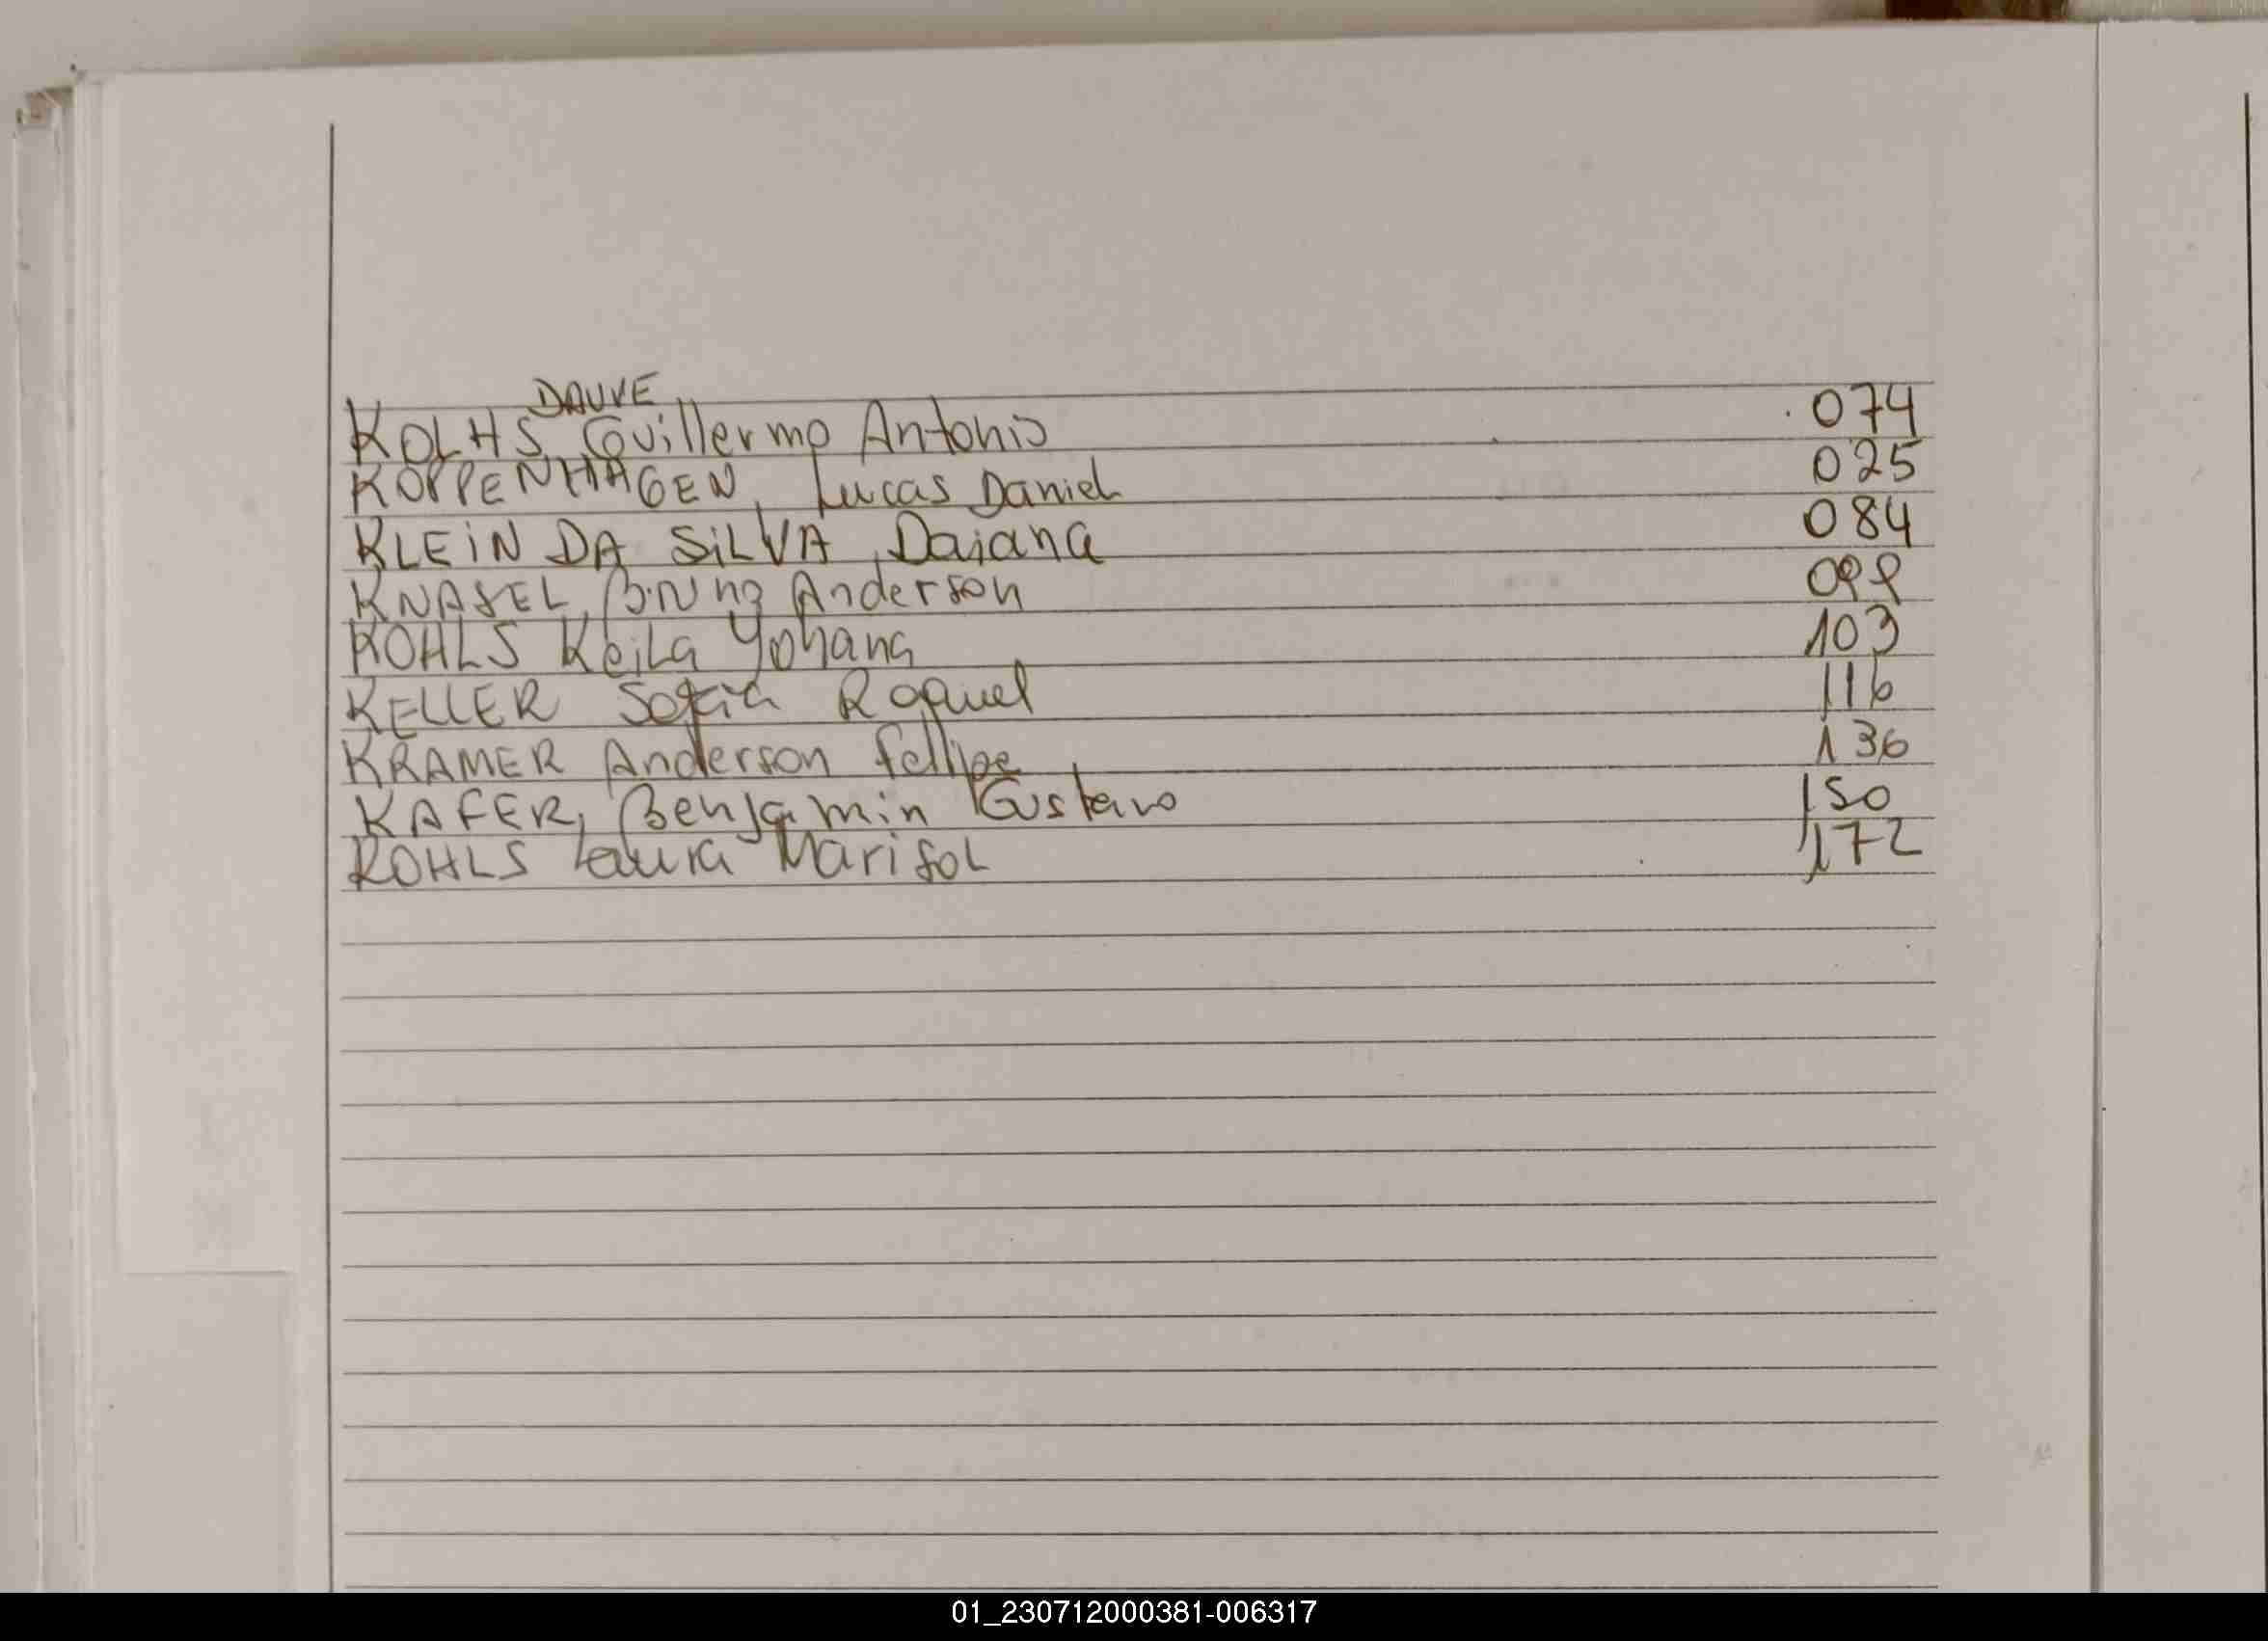 DAUVE
KOLHS, Guillermo Antonio 074
KOPPENHAGEN, Lucas Daniel 025
KLEIN DA SILVA, Daiana 084
KNASEL, Bruno Anderson 099
KOHLS Keila Yohana 103
KELLER Sofia Raquel 116
KRAMER Anderson Fellipe 136
KAFER, Benjamin Gustavo 150
KOHLS Laura Marisol 172
01_230712000381-006317